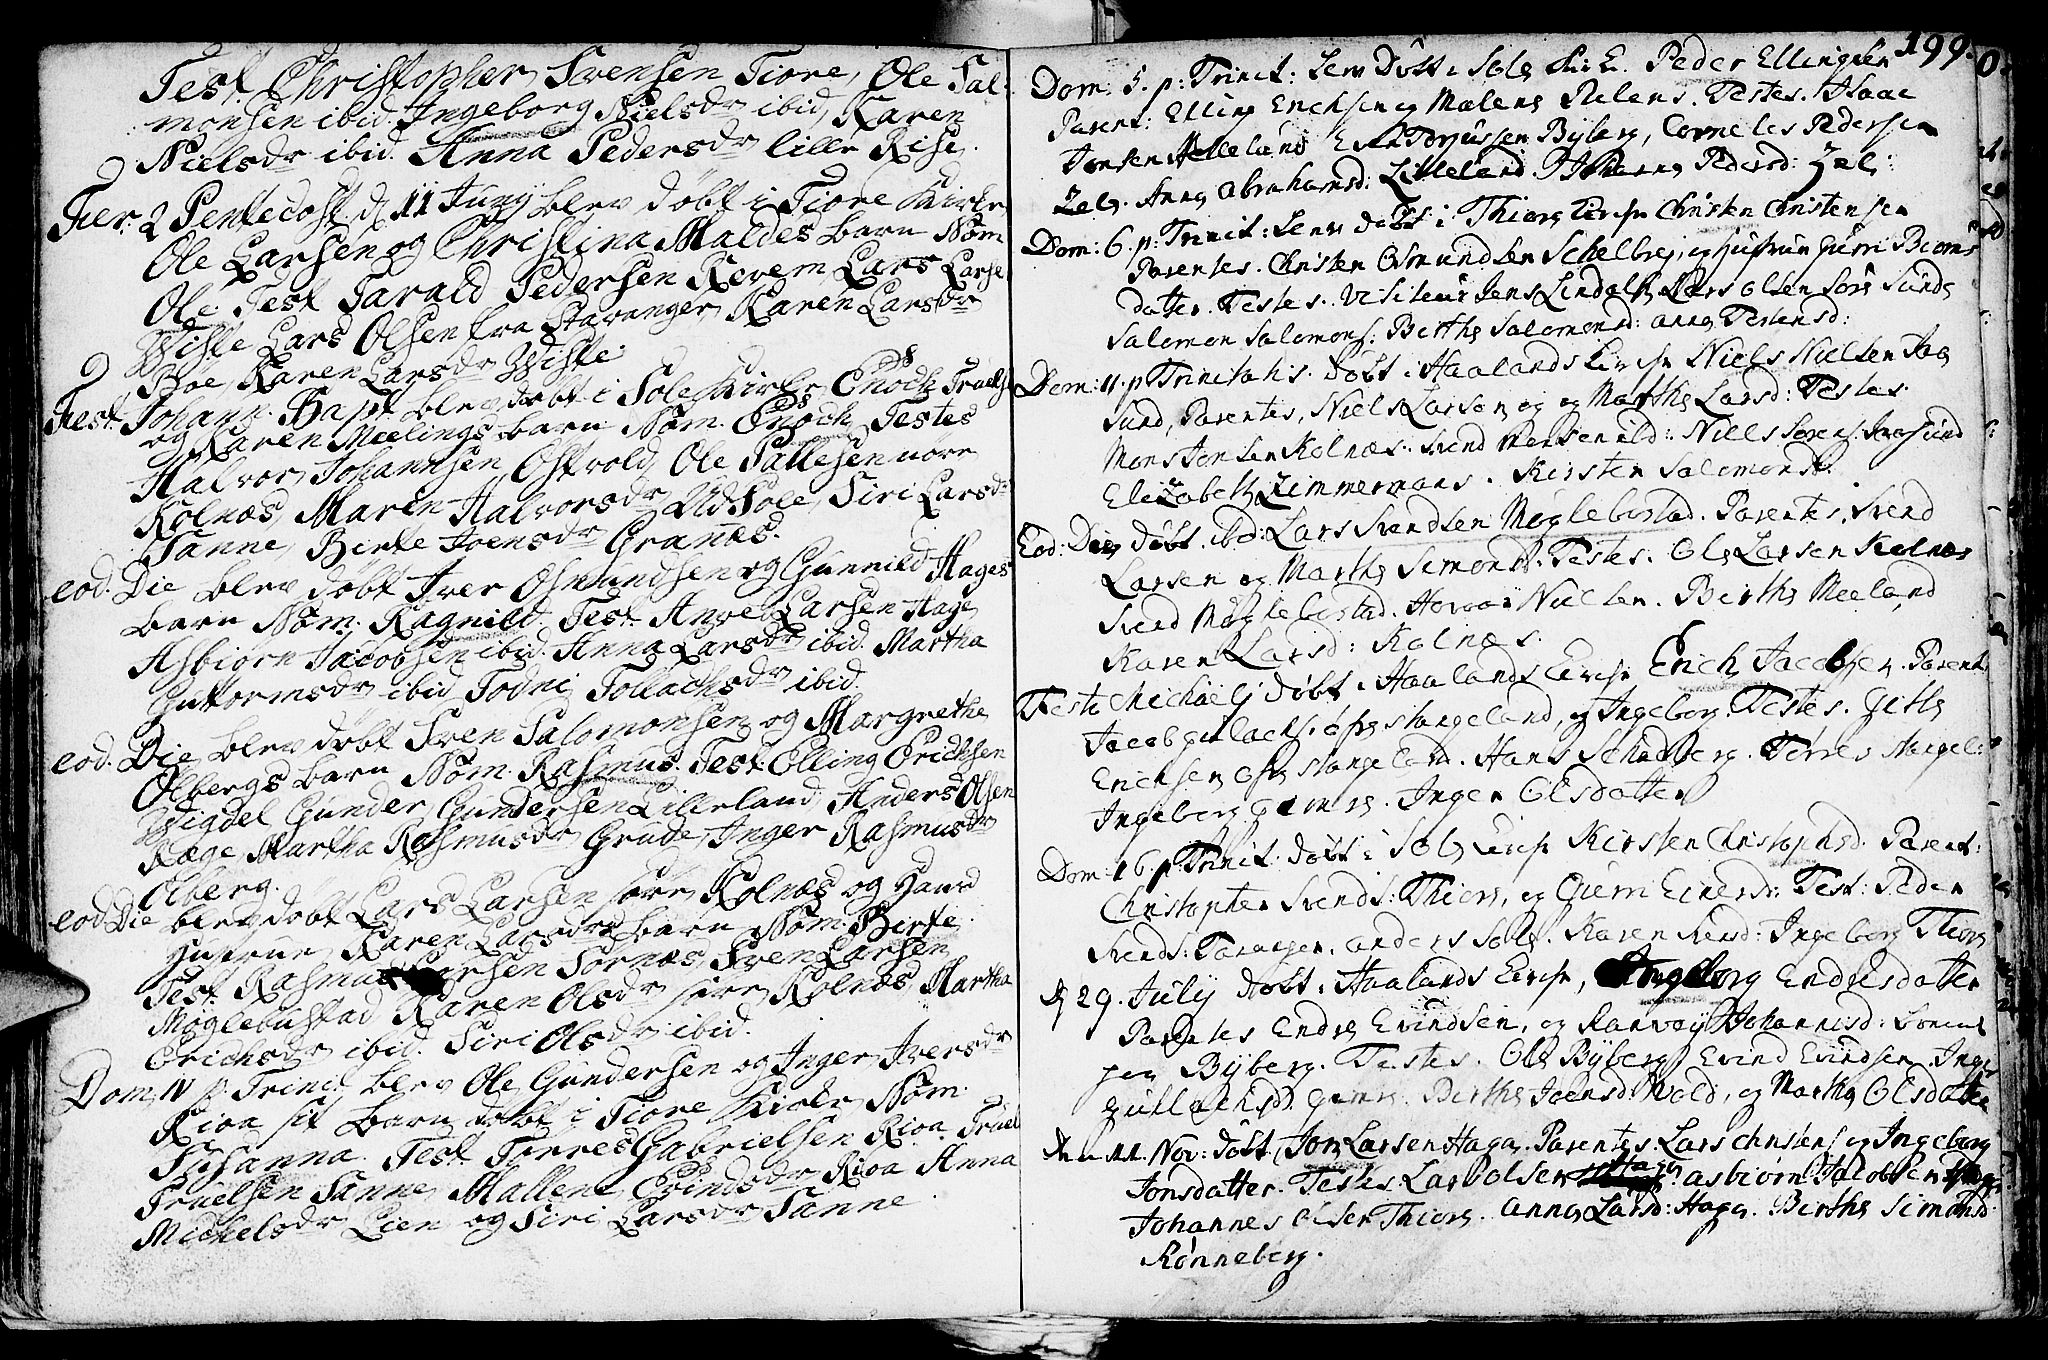 Test. Christopher Svensen Tiore, Ole Sal-
monsen ibid. Ingeborg Nielsdr ibid, Karen
Nielsdr ibid. Anna Pedersdr lille Rise.
Fer. 2 Pentecost. d 11 Juny blev døbt i Tiore Kirke
Ole Larsen og Christina Maldes barn Nom
Ole Test Tarald Pedersen Revem, Lars Larse
Wiste Lars Olsen fra Stavanger, Karen Larsdr
Boe, Karen Larsdr Wiste
Fest. Johann. Bapt blev døbt i Sole Kirke Enoch Truels
og Karen Meelings barn Nom. Enoch Testes
Halvor Johannsen Ostvold, Ole Pallesen nore
Kolnæs, Maren Halvorsdr Ud Sole, Siri Larsdr
Tanne, Birte Joensdr Granæs.
eod. Die blev døbt Iver Osmundsen og Gunnild Hages
barn Nom. Ragnild. Test. Anve Larsen Hage
Asbiørn Jacobsen ibid. Anna Larsdr ibid. Martha
Guttormsdr ibid Todni Tollachsdr ibid.
eod. Die blev døbt Sven Salomonsen og Margrethe
Olbergs barn Nom. Rasmus. Test. Elling Erichsen
Wigdel Gunder Gundersen Lilleland, Anders Olsen
Ræge Martha Rasmusdr Grude, Inger Rasmusdr
Olberg.
eod. Die blev døbt Lars Larsen søre Kolnæs og Hans
Hustrue Karen Larsdrs barn Nom. Birte
Test. Rasmus Larsen Sørnæs, Sven Larsen
Møglebustad Karen Olsdr søre Kolnæs, Martha
Erichsdr ibid. Siri Olsdr ibid.
Dom. IV p. Trinit. blev Ole Gundersen og Inger Iversdr
Rioa sit barn døbt i Tiore Kirke Nom.
Susanna. Test. Torres Gabrielsen Rioa Truel
Truelsen Tanne, Mallene Evindsdr Rioa Anna
Michelsdr Lien og Siri Larsdr Tanne.
199.
Dom: 5. p: Trinit: blev Døbt i Sole K: Peder Ellingsen
Parent: Elling Erichsen og Malene Testes. Isaac
Jonsen Helleland Evind Torjussen Byberg, Corneles Pedersen
Zele. Anna Abrahamsd: Lilleland. Johanna Pedersd: Zele:
Dom: 6. p: Trinit: blev døbt i Thiore Circhen Christen Christensen
Parentes. Christen Osmundsen Schelbrej, og hustrue Gurri Biørns
datter. Testes. Visiteur Jens Lindal, Lars Olsen Søre Sunde
Salomon Salomons: Berthe Salomonsd: Anna Testensd:
Dom: 11. p Trinitatis. døbt i Haalands Circhen Niels Nielsen Jaa
sund, Parentes, Niels Larsen og Marthe Larsd: Testes
Mons Jonsen Kolnæs. Svend Niels Sørens: Jaasund
Elizabeth Zimmermans. Kirsten Salomonsd.
Eod: Die døbt ibid: Lars Svendsen Møglebustad. Parentes, Svend
Larsen og Marthe Simonsd. Testes. Ole Larsen Kolnæs
Svend Møglebustad. Nielsen. Berthe Meeland,
Karen Larsd: Kolnæs.
Festo Michaelj døbt i Haalands Circhen Erich Jacobsen. Parent:
Jacob Gulachs: øfre Stangeland, og Ingeborg. Testes. Gitle
Erichsen øfre Stangeland. Hans Torres Stangel:
Ingeborg Inger Olsdatter
Dom: 16. p: Trinit. døbt i Sole Circhen Kirsten Christophersd. Parent:
Christopher Svends: Thiore, og Guri Einersd: Test: Peder
Svends: Anders Sole. Karen Svensd: Ingeborg Thiore
d 29. July døbt i Haalands Circhen, Ingeborg Endresdatter
Parentes Endre Evindsen, og Ranvey Johannesd:
Byberg. Testes. Ole Byberg, Evind Evindsen, Inger
Gullachsd. Berthe Joensd: Wold, og Marthe Olsdatter
11. Nov: døbt Jon Larsen Haga. Parentes. Lars Christens: og Ingeborg
Jonsdatter. Testes Lars Olsen Haga asbiørn Jacobsen
Johannes Olsen Thiore. Anna Larsd: Haga. Berthe Simonsd.
Rønneberg.